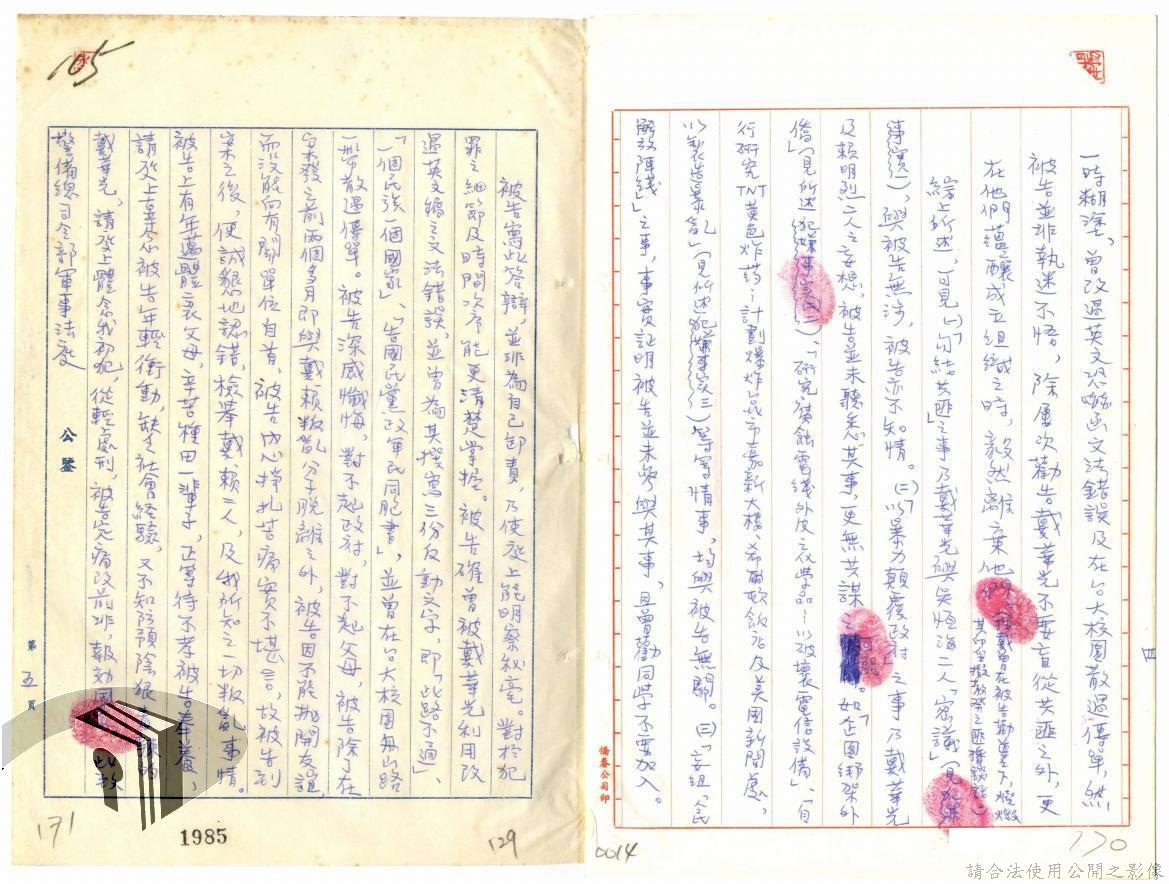 四
一時糊塗、曾改過英文恐嚇函文法錯誤及在台大校園散過傳單，然
被告並非執迷不悟，除屢次勸告戴華光不要盲從共匪之外，更
在他們蘊釀成立組織之時，毅然離棄他們。
綜上所述，可見(一)「勾結共匪」之事乃戴華光與吳恒海二人「密議」(見犯罪
事實一)，與被告無涉，被告亦不知情。(二)「以暴力顛覆政府」之事乃戴華光
及賴明烈二人之妄想，被告並未聽悉其事，更無共謀之 如「企圖綁架外
僑」(見所述犯罪事實二)、「研究腐蝕電綫外皮之化學品」以破壞電信設備」、「自
行研究TNT黃色炸葯」、計劃爆炸「台北市嘉新大樓、希爾頓飯店及美國新聞處，
以製造暴亂」(見所述犯罪事實三)等等情事，均與被告無關。(三)「妄組「人民
解放陣綫」」之事，事實証明被告並未參與其事，且曾勸同學不要加入。
僑泰公司印
0014
170
105
被告寫此答辯，並非為自己卸責，乃使庭上能明察秋毫。對於犯
罪之細節及時間次序能更清楚掌握。被告確曾被戴華光利用改
過英文稿之文法錯誤，並曾為其撰寫三份反動文字，即「此路不通」、
「一個民族一個國家」、「告國民黨政軍民同胞書」，並曾在台大校園舟山路
一帶散過傳單。被告深感懺悔，對不起政府，對不起父母，被告除了在
案發之前兩個多月即與戴賴叛亂分子脫離之外，被告因不能拋開友誼，
而沒能向有關單位自首，被告內心掙扎苦痛實不堪言，故被告到
案之後，便誠懇地認錯，檢舉戴、賴二人，及我所知之一切叛亂事情。
被告上有年邁體衰父母，辛苦種田一輩子，正等待不孝被告奉養，
請庭上垂念被告年輕衝動，缺乏社會經驗，又不知防預陰狠 的
戴華光，請庭上體念我初犯，從輕處刑，被告定痛改前非，報効國 此致
警備總司令部軍事法庭
公鑒
第五頁
171
1985
129
請合法使用公開之影像